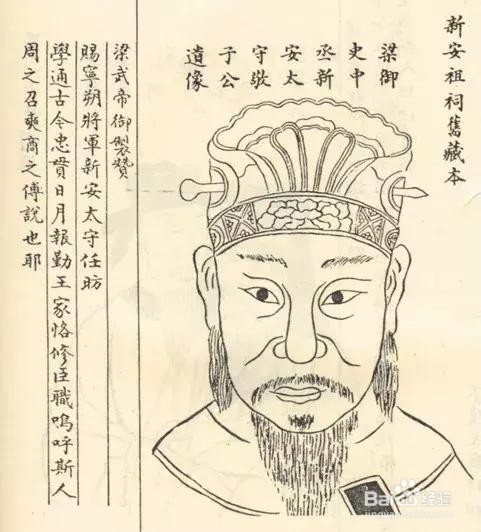 新安祖祠舊藏本
梁御
史中
丞新
安太
守敬
子公
遺像
梁武帝御製贊
賜寧朔將軍新安太守任昉
學通古今忠貫日月報勤王家恪修臣職嗚呼斯人
周之召奭商之傅說也耶
Baidu经验